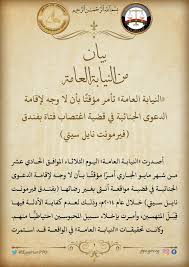 بسم الله الرحمن الرحيم
بيان
من النيابة العامة
«النيابة العامة» تأمر مؤقتًا بأن لا وجه لإقامة
الدعوى الجنائية في قضية اغتصاب فتاة بفندق
(فيرمونت نايل سيتي)
أصدرت «النيابة العامة» اليوم الثلاثاء الموافق الحادي عشر
من شهر مايو الجاري أمرًا مؤقتًا بأن لا وجه لإقامة الدعوى
الجنائية في واقعة مواقعة أنثى بغير رضائها «بفندق فيرمونت
نايل سيتي» خلال عام ٢٠١٤م، وذلك لعدم كفاية الأدلة فيها
قِبل المتهمين، وأمرت بإخلاء سبيل المحبوسين احتياطيًّا منهم.
وكانت تحقيقات «النيابة العامة» في الواقعة قد استمرت